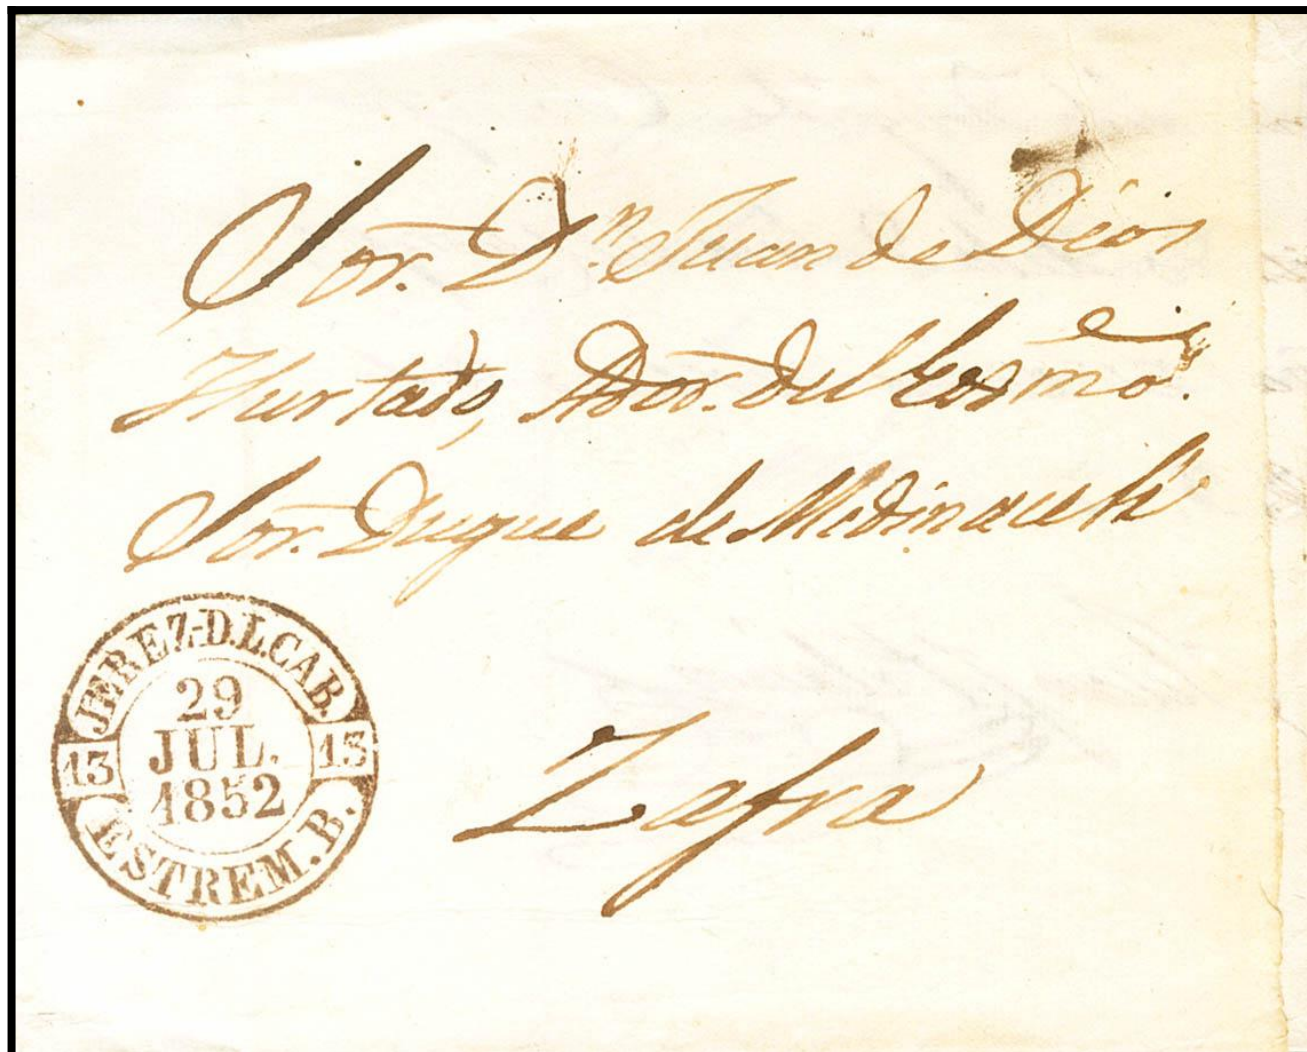 Sor. Dn. Juan de Dios
Hurtado, Ador. del Exmõ.
Sor. Duque de Medinaceli
Zafra
JEREZ-D.L.CAB.
29
JUL.
1852
13 13
ESTREM. B.